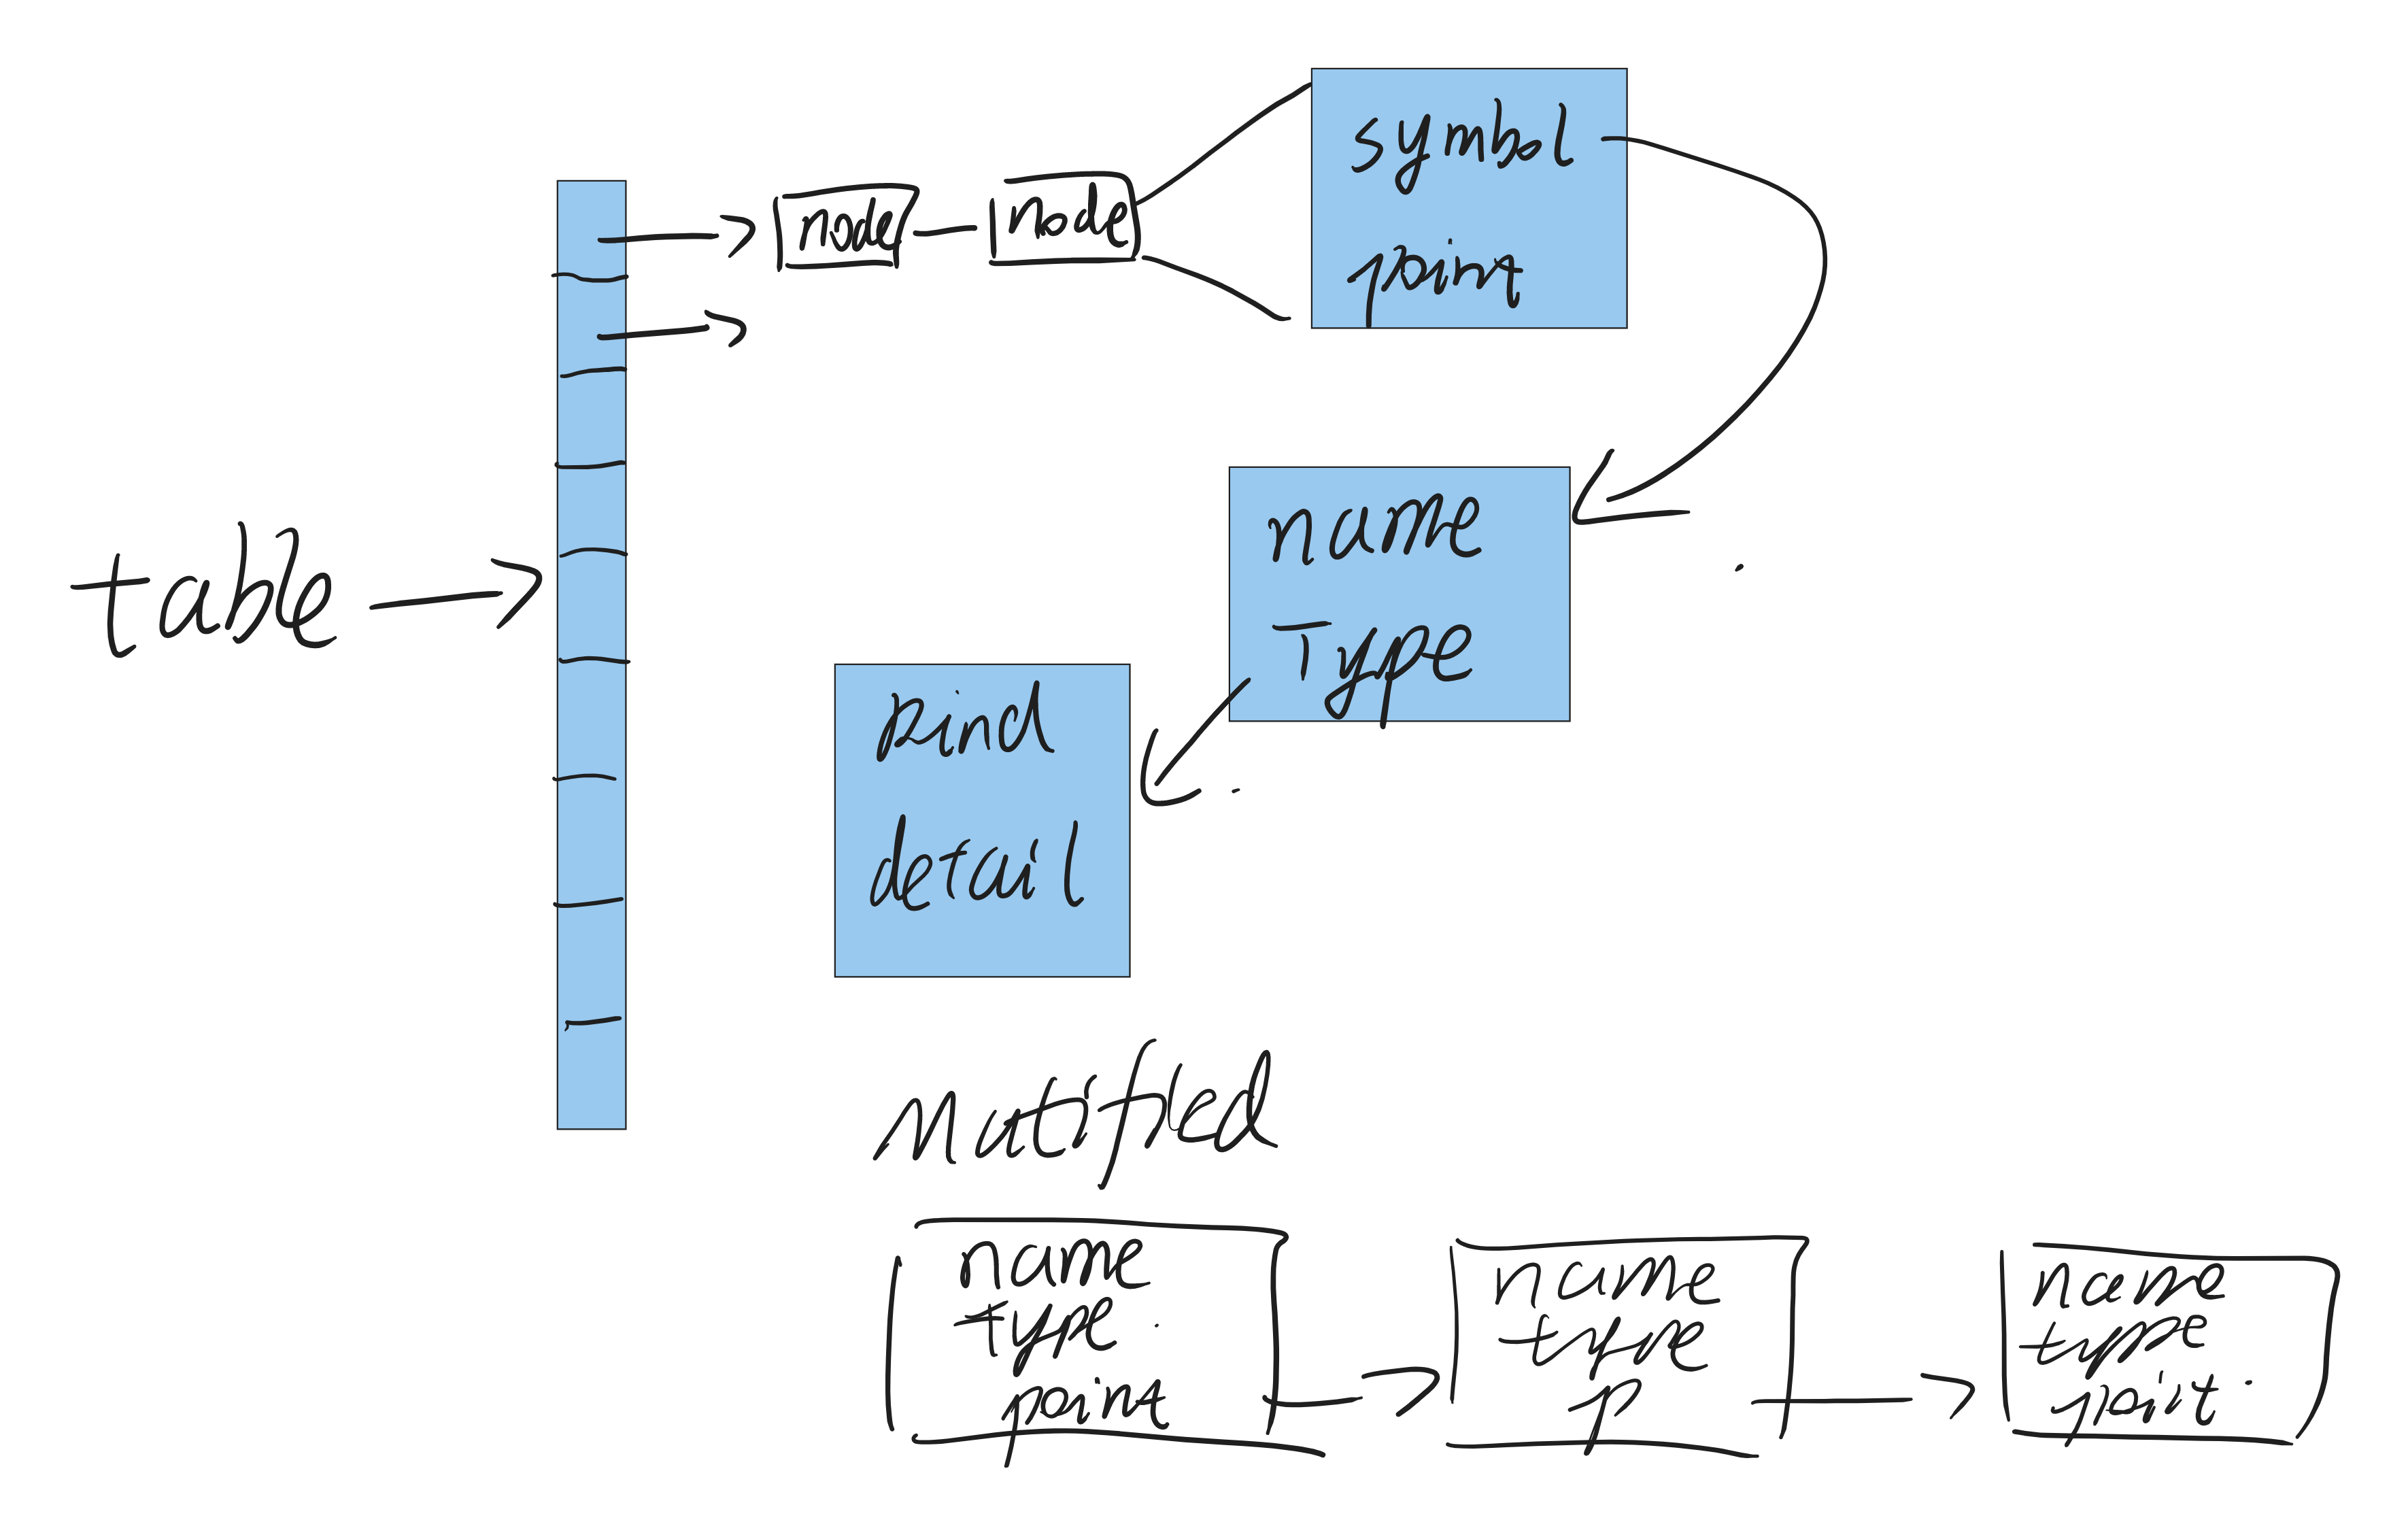 table
node
node
symbol
point
name
Type
kind
detail
Matified
name
type
point
name
type
p
name
type
point